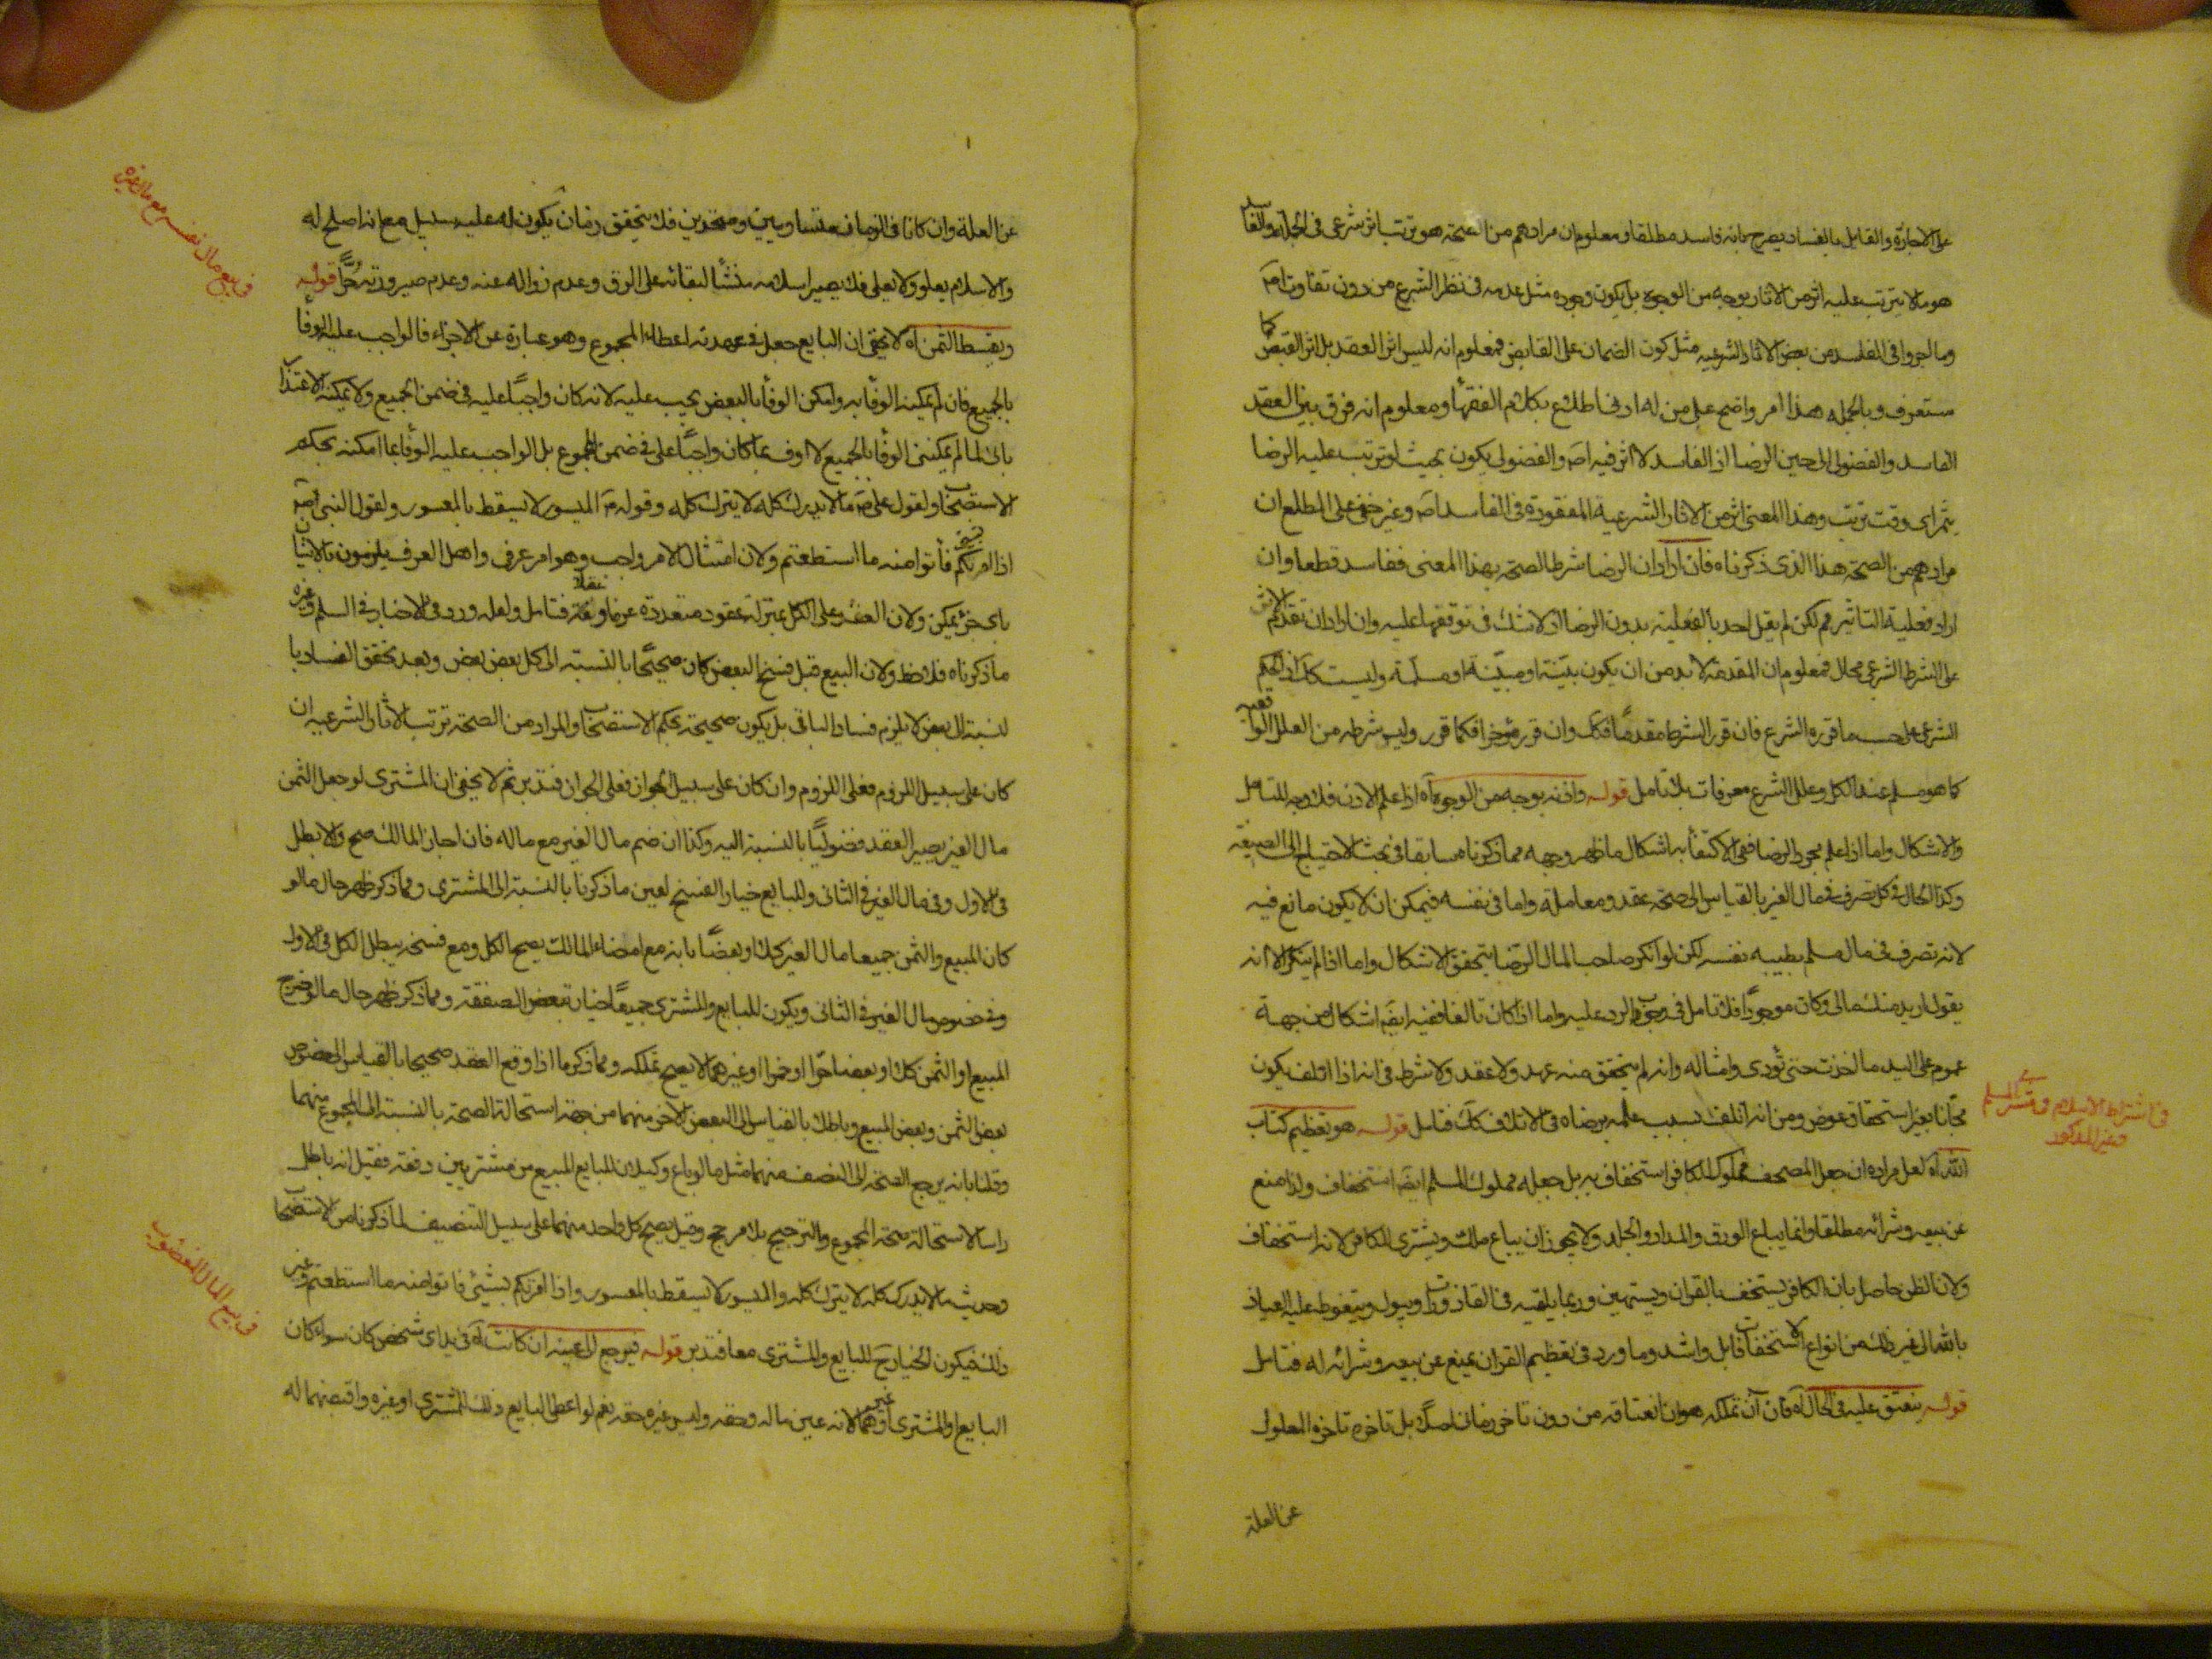 على الاجازة والقايل بالفساد يصرح بانه فاسد مطلقا ومعلوم ان مرادهم من الصحة هو ترتب اثر شرعى فى الجملة والفاسد
هو ما لا يترتب عليه اثر من الاثار بوجه من الوجوه بل يكون وجوده مثل عدمه فى نظر الشرع من دون تفاوت اصم
وما اجروا فى الفاسد من بعض الاثار الشرعيه مثل كون الضمان على القابض فمعلوم انه ليس اثر العقد بل اثر القبض كما
ستعرف وبالجمله هذا امر واضح على من له ادنى اطلاع بكلام الفقهاء ومعلوم انه فرق بين العقد
الفاسد والفضولى الى حين الرضا اذ الفاسد لا اثر فيه اصم والفضولى يكون بحيث لو ترتب عليه الرضا
يثمر اى وقت ترتب وهذا المعنى اثر من الاثار الشرعية المفقودة فى الفاسد اصم وغير خفى على المطلع ان
مرادهم من الصحة هذا الذى ذكرناه فان اراد ان الرضا شرط الصحة بهذا المعنى ففاسد قطعا وان
اراد فعلية التاثير فم لكن لم يقل احد بالفعلية بدون الرضا اذ لا شك فى توقفها عليه وان اراد ان تقدم الاثر
على الشرط الشرعى محال فمعلوم ان المقدمة لا بد من ان يكون بيّنة او مبيّنة او مسلّمة وليست كك اذ الحكم
الشرعى على حسب ما قرره الشرع فان قرر الشرط مقدما فكك وان قرر مؤخرا فكما قرر وليس شرطه من العلل الواقعية
كما هو مسلم عند الكل وعلل الشرع معرفات بلا تامل قوله واذنه بوجه من الوجوه آه اذا علم الاذن فلا وجه للتامل
والاشكال واما اذا علم مجرد الرضا ففى الاكتفاء به اشكال ما ظهر وجهه مما ذكرناه سابقا فى بحث الاحتياج الى الصيغه
وكذا الحال فى كل تصرف فى مال الغير بالقياس الى صحة عقد ومعاملة واما فى نفسه فيمكن ان لا يكون مانع فيه
لانه تصرف فى مال مسلم بطيبه نفسه لكن لو انكر صاحب المال الرضا يتحقق الاشكال واما اذا لم ينكر الا انه
يقول اريد منك مالى وكان موجودا فلا تامل فى وجوب الرد عليه واما اذا كان تالفا ففيه ايضم اشكال من جهة
عموم على اليد ما اخذت حتى تؤدى وامثاله وانه لم يتحقق منه عهد ولا عقد ولا شرط فى انه اذا اتلف يكون
مجّانا بغير استحقاق عوض ومن انه اتلفه بسبب علمه برضاه فى الاتلاف كك فتامل قوله هو تعظيم كتاب
الله آه لعل مراده ان جعل المصحف مملوك الكافر استخفاف به بل جعله مملوك المسلم ايضم استخفاف ولذا منع
عن بيعه وشرائه مطلقا وانما يباع الورق والمداد والجلد ولا يجوز ان يباع ملك ويشترى للكافر لانه استخفاف
ولان الظن حاصل بان الكافر يستخف بالقران ويستهين وربما يلقيه فى القاذورات ويبول ويتغوط عليه العياذ
بالله الى غير ذلك من انواع الاستخفاف قابل واشد وما ورد فى تعظيم القران يمنع عن بيعه وشرائه له فتامل
قوله ينعتق عليه فى الحال آه فان آن تملكه هو ان انعتاقه من دون تاخر زمانى اصلا بل تاخره تاخر المعلول
عن العلة
فى اشتراط الاسلام فى مشترى المسلم
وغير المذكور
عن العلة وان كانا فى الزمان متساويين ومتحدين فلا يتحقق زمان يكون له عليه سبيل مع انه اصلح له
والاسلام يعلو ولا يعلى فلا يصير اسلامه منشأ لبقائه على الرق وعدم زواله عنه وعدم صيرورته حُرًّا قوله
ويقسط الثمن آه لا يخفى ان البايع جعل فى عهدته اعطاء المجموع وهو عبارة عن الاجزاء فالواجب عليه الوفا
بالجميع فان لم يمكنه الوفا به وامكن الوفا بالبعض يجب عليه لانه كان واجبًا عليه فى ضمن الجميع ولا يمكنه الاعتذار
بانى لما لم يمكننى الوفا بالجميع لا اوف بما كان واجبًا على فى ضمن المجموع بل الواجب عليه الوفا بما امكنه بحكم
الاستصحاب ولقول على م ما لا يدرك كله لا يترك كله وقوله م الميسور لا يسقط بالمعسور ولقول النبى ص
اذا امرتكم بشئ فأتوا منه ما استطعتم ولان امتثال الامر واجب وهو امر عرفى واهل العرف يلزمون بالاتيان
باى جزء يمكن ولان العقد على الكل بمنزلة عقود متعددة عرفا فتامل ولعله ورد فى الاخبار فى السلم وغيره
ما ذكرناه فلاحظ ولان البيع قبل فسخ البعض كان صحيحًا بالنسبة الى كل بعض بعض وبعد تحقق الفساد با
لنسبة الى بعض لا يلزم فساد الباقى بل يكون صحيحة بحكم الاستصحاب والمراد من الصحة ترتب الاثار الشرعيه ان
كان على سبيل اللزوم فعلى اللزوم وان كان على سبيل الجواز فعلى الجواز فتدبر ثم لا يخفى ان المشترى لو جعل الثمن
مال الغير يصير العقد فضوليًا بالنسبة اليه وكذا ان ضم مال الغير مع ماله فان اجاز المالك صح والا بطل
فى الاول وفى مال الغير فى الثانى وللبايع خيار الفسخ لعين ما ذكرنا بالنسبة الى المشترى ومما ذكر ظهر حال ما لو
كان المبيع والثمن جميعا مال الغير كلا او بعضًا بانه مع امضاء المالك يصح الكل ومع فسخه يبطل الكل فى الاول
وفى خصوص مال الغير فى الثانى ويكون للبايع والمشترى جميعًا خيار تبعض الصفقة ومما ذكر ظهر حال ما لو خرج
المبيع او الثمن كلا او بعضا حرّا او خمرا او غيرهما لا يصح تملكه ومما ذكر ما اذا وقع العقد صحيحا بالقياس الى خصوص
بعض الثمن وبعض المبيع وباطلا بالقياس الى البعض الاخر منهما من جهة استحالة الصحة بالنسبة الى المجموع منهما
وقلنا بانه يرجع الصحة الى النصف منهما مثل ما لو باع وكيلان للبايع المبيع من مشتريين دفعة فقيل انه باطل
راسا لاستحالة صحة المجموع والترجيح بلا مرجح وقيل يصح كل واحد منهما على سبيل التنصيف لما ذكرنا من الاستصحاب
وحديث ما لا يدرك كله لا يترك كله والميسور لا يسقط بالمعسور واذا امرتكم بشئ فاتوا منه ما استطعتم وغير
ذلك فيكون الخيار ح للبايع والمشترى معا فتدبر قوله فيرجع الى عينه ان كانت آه فى يد اى شخص كان سواء كان
البايع او المشترى او غيرهما لانه عين ماله وحقه وليس غيره حقه نعم لو اعطى البايع ذلك المشترى او غيره واقبضهما له
فى بيع مال نفسه مع مال غيره
فى بيع المال المغصوب